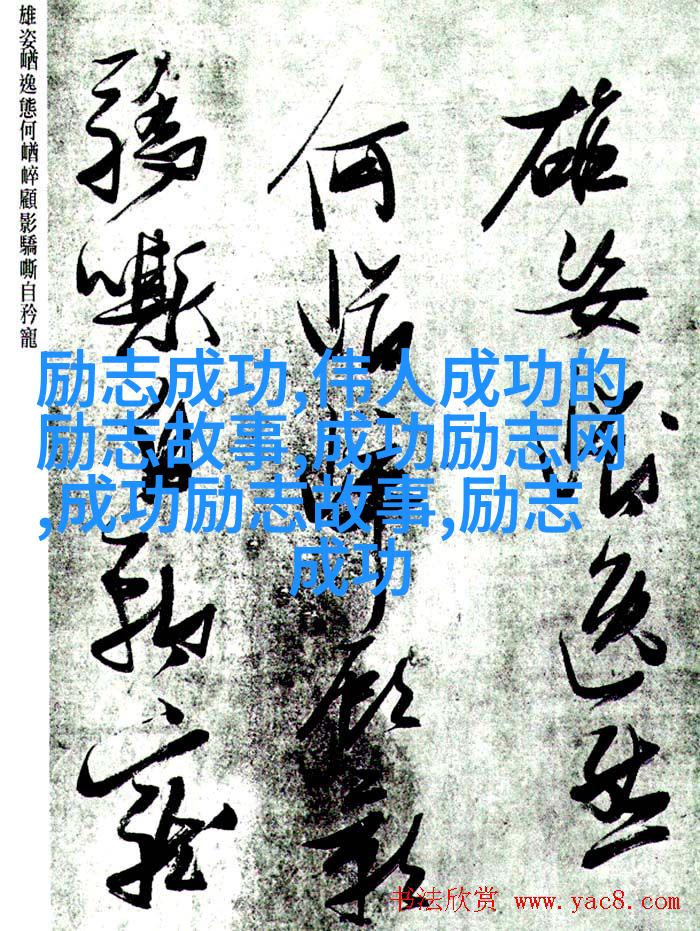 雄姿逸態
何崷崒顧影
驕嘶自矜寵
雄姿崷逸態何崷崒顧影驕嘶自矜寵
励志成功,伟人成功的
励志故事,成功励志网
,成功励志故事,励志
成功
书法欣赏 www.yac8.com